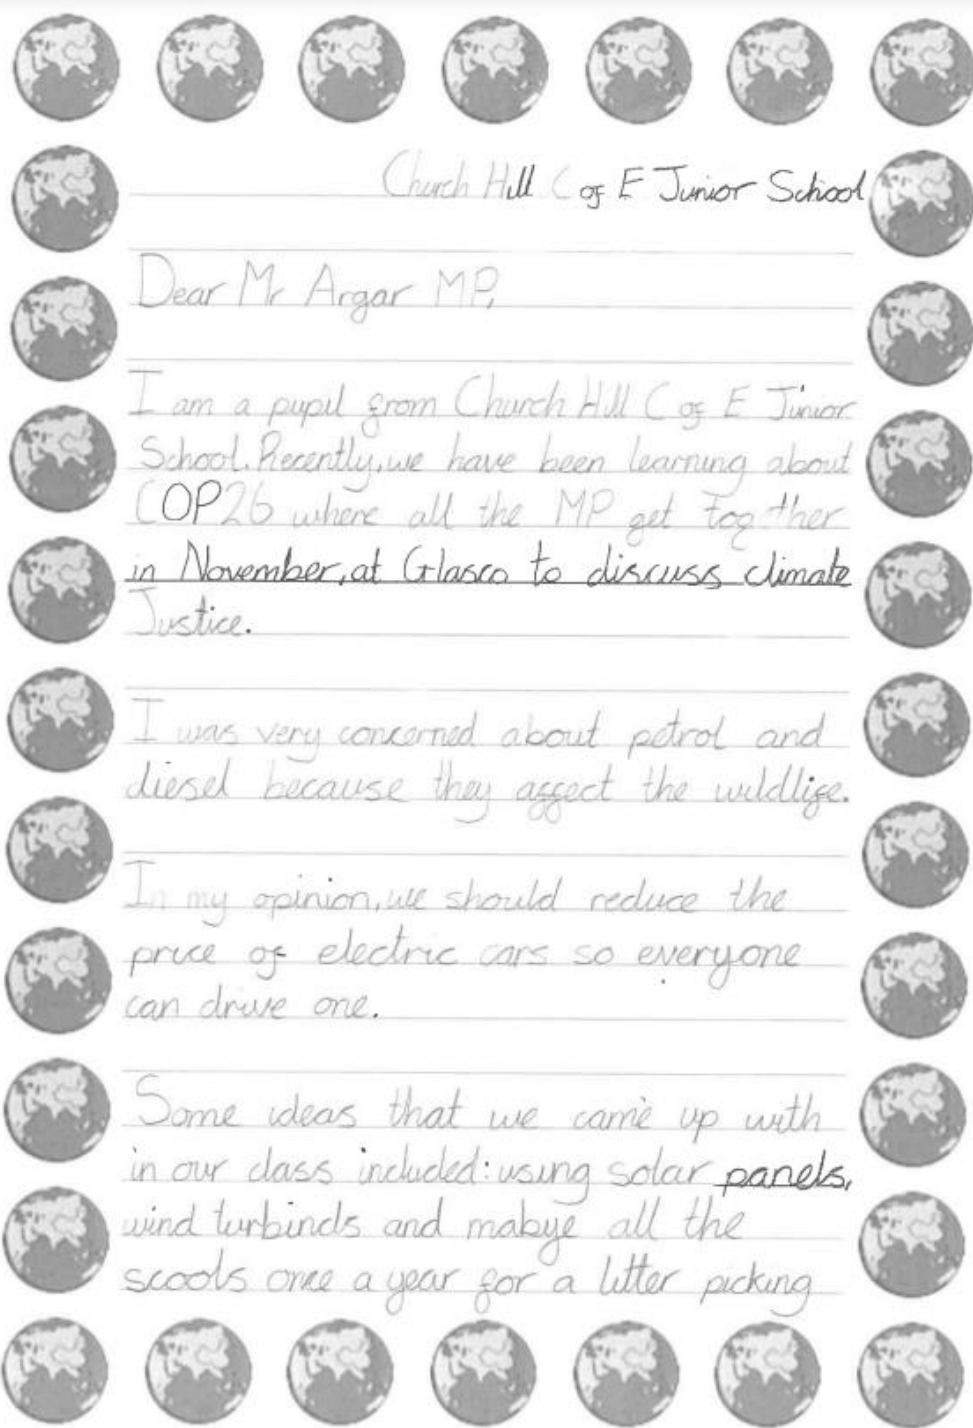 Church Hill C of E Junior School
Dear Mr Argar MP,
I am a pupil from Church Hill C of E Junior
School. Recently, we have been learning about
COP26 where all the MP get together
in November, at Glasco to discuss climate
Justice.
I was very concerned about petrol and
diesel because they affect the wildlife.
In my opinion, we should reduce the
price of electric cars so everyone
can drive one.
Some ideas that we came up with
in our class included: using solar panels,
wind turbinds and mabye all the
scools once a year for a litter picking